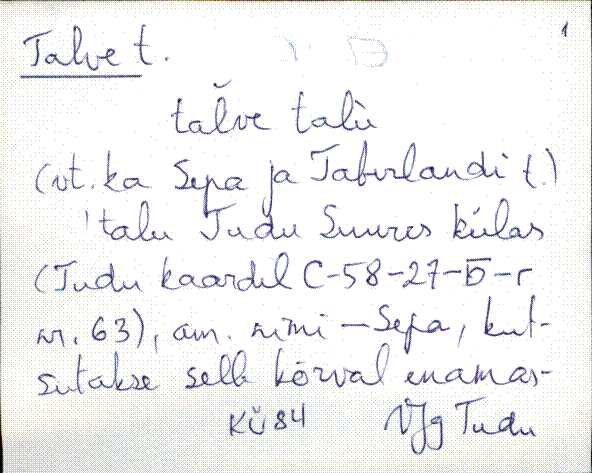 1
Talve t.
talve talu
(vt. ka Sepa ja Taberlandi t.)
'talu Tudu Suures külas
(Tudu kaardil C-58-27-Б-г
nr. 63), am. nimi – Sepa, kut-
sutakse selle kõrval enamas-
KÜ 84 VJg Tudu